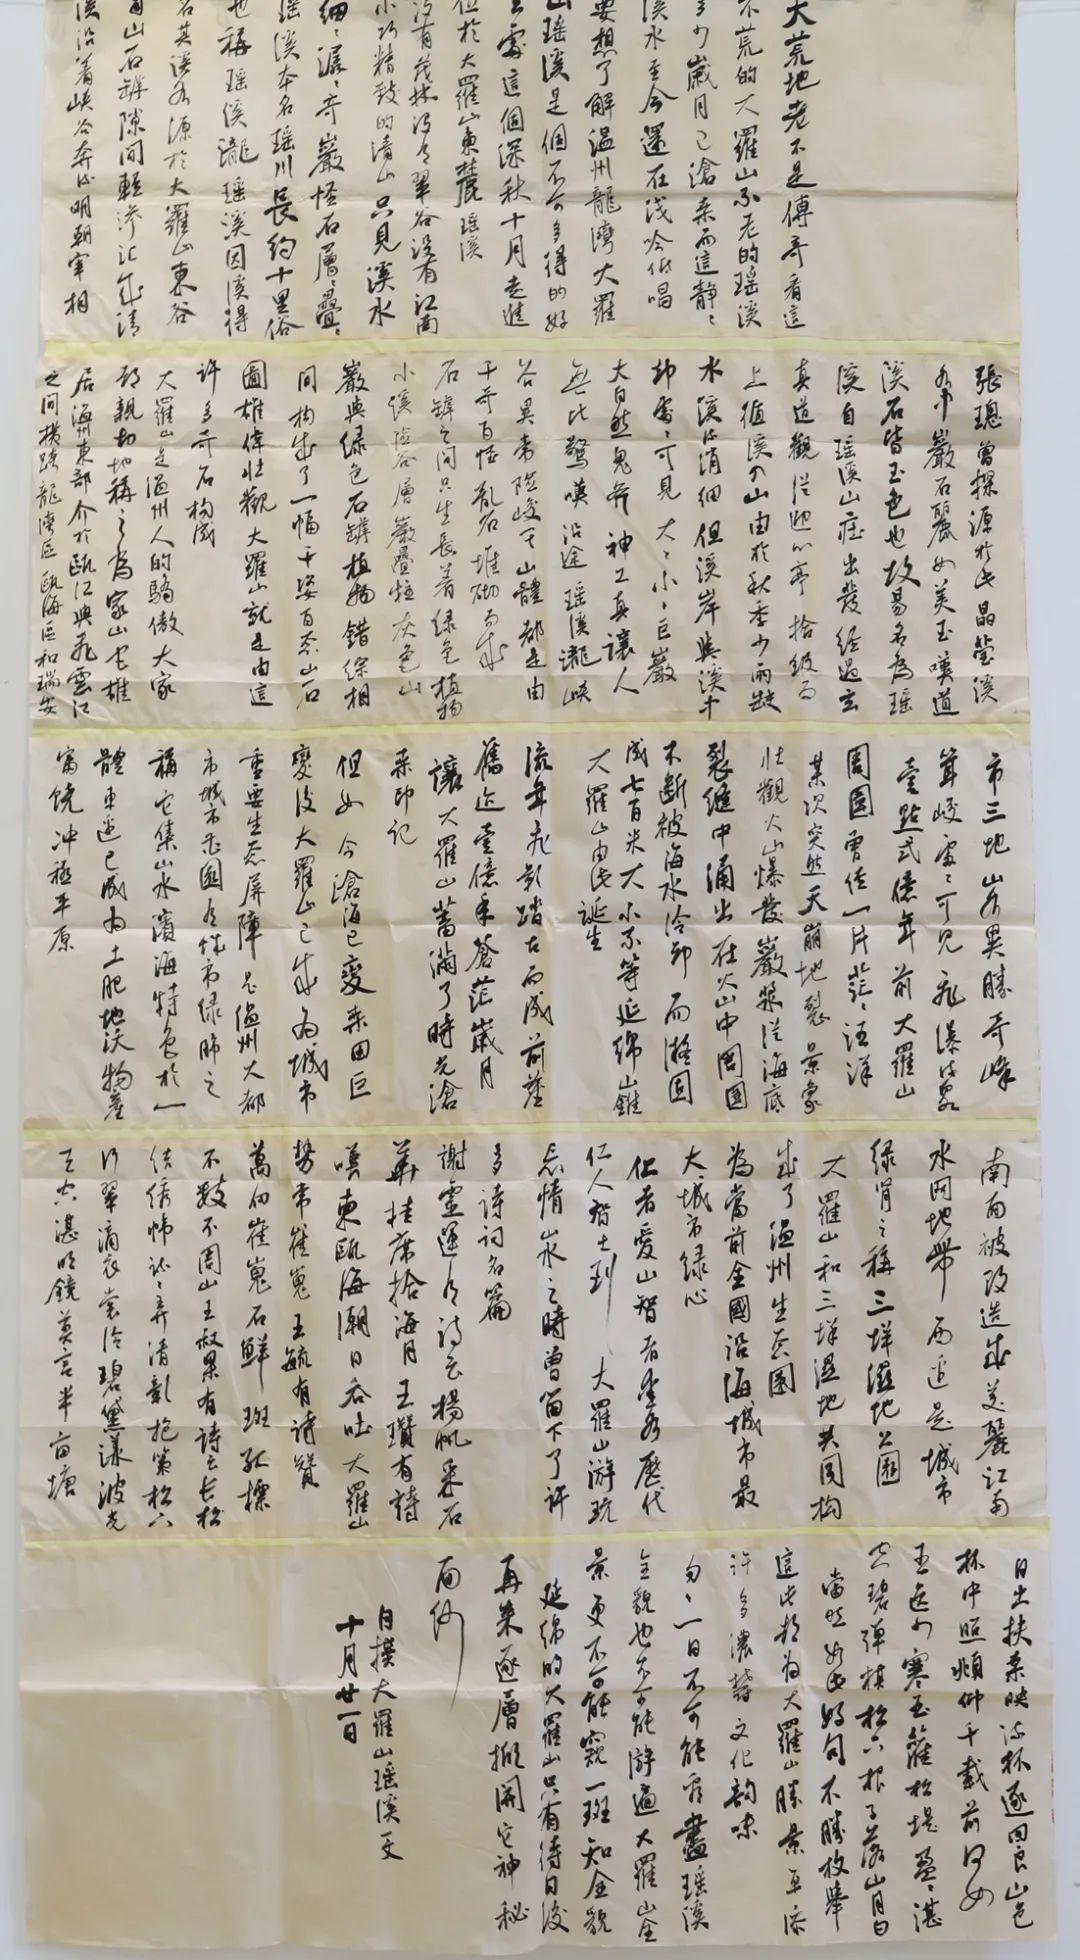 大荒地老不是傳奇看這
不荒的大羅山不老的瑶溪
多少歲月已滄桑而這静〻
溪水至今還在浅吟低唱
要想了解温州龍灣大羅
山瑶溪是個不可多得的好
去處這個深秋十月走進
位於大羅山東麓瑶溪
没有茂林没有翠谷没有江南
小巧精致的清山只見溪水
細〻潺〻奇巖怪石層〻疊〻
瑶溪本名瑶川長约十里俗
也稱瑶溪瀧瑶溪因溪得
名其溪水源於大羅山東谷
由山石罅隙間輕渗汇成清
溪沿着峡谷奔流明朝宰相
張璁曾探源於此晶瑩溪
水中巖石麗如美玉嘆道
溪石皆玉色也故易名為瑶
溪自瑶溪山莊出發经過玄
真道觀從迎心亭拾级而
上循溪入山由於秋季少雨缺
水溪流涓细但溪岸與溪中
却處〻可見大〻小〻巨巖
大自然鬼斧神工真讓人
無比驚嘆沿途瑶溪瀧峡
谷異常陡峻于山體都是由
千奇百怪亂石堆砌而成
石罅之间只生長着绿色植物
小溪险谷層巖疊恒灰色山
巖與绿色石罅植物錯综相
间构成了一幅千姿百态山石
圖雄偉壮觀大羅山就是由這
许多奇石构成
大羅山是温州人的驕傲大家
都親切地稱之為家山它雄
居海州東部介於甌江與飛雲江
之间横跨龍湾區甌海區和瑞安
市三地山水異勝奇峰
茸峻處〻可見飛瀑流泉
壹點弍億年前大羅山
周圍曾住一片茫〻汪洋
某次突然天崩地裂景象
壮觀火山爆發巖漿從海底
裂縫中涌出在火山中周圍
不断被海水冷却而凝固
成七百米大小不等延绵山錐
大羅山由此誕生
流年飛影踏古而成前塵
舊迹壹億年蒼茫歲月
讓大羅山蓄滿了時光滄
桑印记
但如今滄海已變桑田巨
變後大羅山已成為城市
重要生态屏障是温州大都
市城市花園有城市绿肺之
稱它集山水濱海特色於一
體東邊已成为土肥地沃物産
富饶冲積平原
南面被改造成美麗江南
水网地帶西边是城市
绿肾之稱三垟濕地公園
大羅山和三垟濕地共同构
成了温州生态園
為當前全國沿海城市最
大城市绿心
仁者愛山智者樂水歷代
仁人智士到大羅山游玩
忘情山水之時曾留下了许
多詩词名篇
謝靈運有詩云揚帆采石
華挂席拾海月王瓚有詩
嘆東甌海潮日吞吐大羅山
势常崔嵬王毓有诗贊
萬仞崔嵬石鮮斑孤標
不数不周山王叔果有詩云长松
偃绣幃泚〻弄清影抱策松六
月翠滴衣裳冷碧黛漾波光
天宇湛明鏡莫言半亩塘
日出扶桑映流杯逐回良山色
杯中照頫仰千载前何如
王逸少寒玉蘿松堤盈〻湛
空碧彈棋松六根子落山月白
當然如此好句不勝枚舉
這些都为大羅山勝景平添
许多濃鬱文化韵味
匆〻一日不可能看盡瑶溪
全貌也不可能游遍大羅山全
景更不可能窺一斑知全貌
延绵的大羅山只有待日後
再来逐層掀開它神秘
面紗
自撰大羅山瑶溪文
十月廿一日